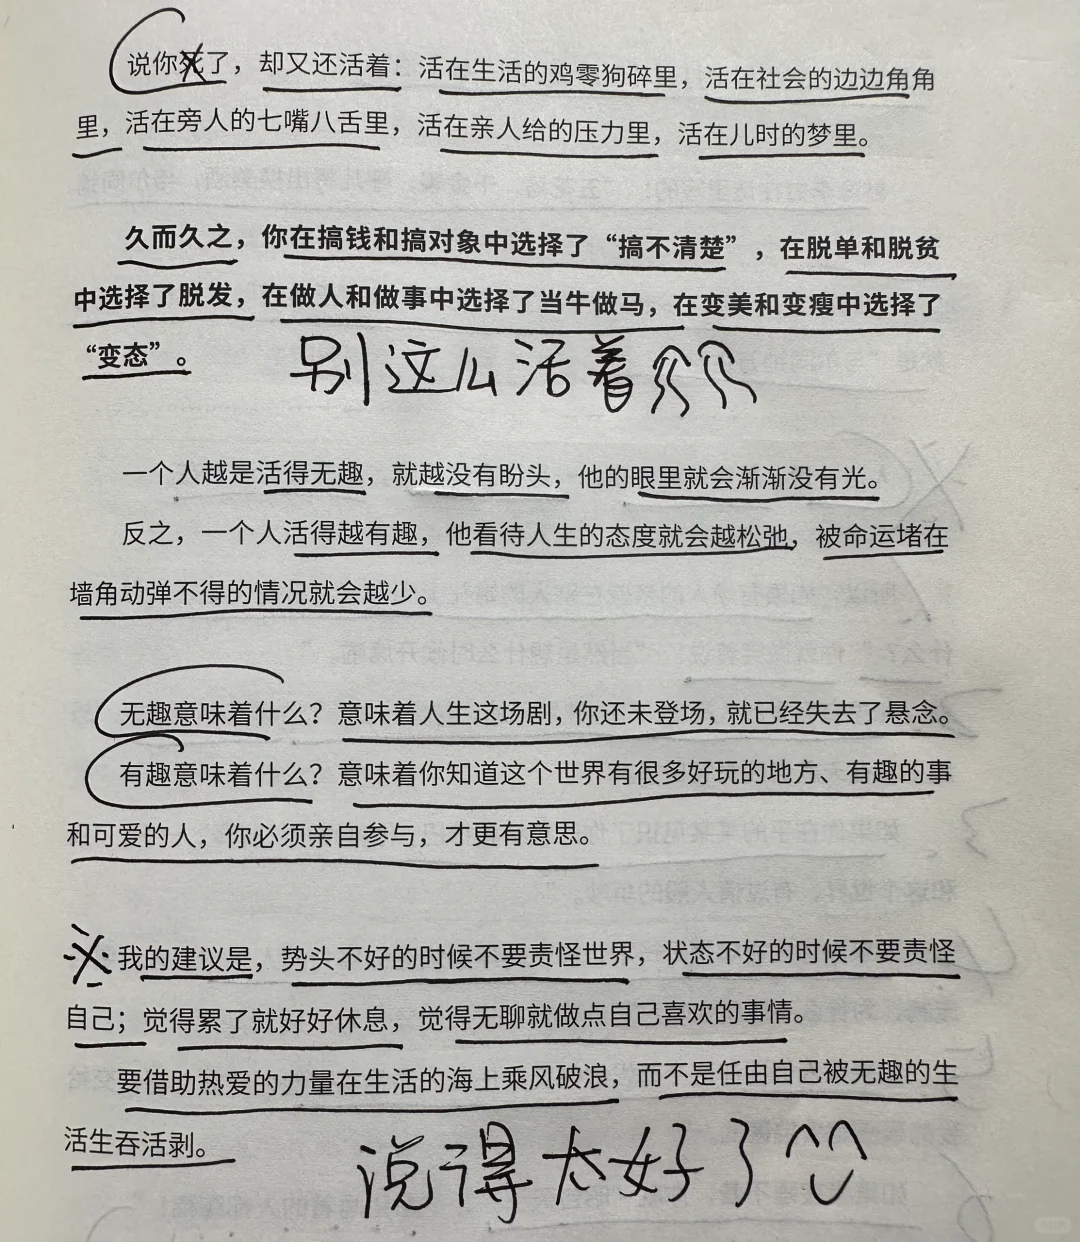 说你死了，却又还活着：活在生活的鸡零狗碎里，活在社会的边边角角
里，活在旁人的七嘴八舌里，活在亲人给的压力里，活在儿时的梦里。
久而久之，你在搞钱和搞对象中选择了“搞不清楚”，在脱单和脱贫
中选择了脱发，在做人和做事中选择了当牛做马，在变美和变瘦中选择了
“变态”。
别这么活着
一个人越是活得无趣，就越没有盼头，他的眼里就会渐渐没有光。
反之，一个人活得越有趣，他看待人生的态度就会越松弛，被命运堵在
墙角动弹不得的情况就会越少。
无趣意味着什么？意味着人生这场剧，你还未登场，就已经失去了悬念。
有趣意味着什么？意味着你知道这个世界有很多好玩的地方、有趣的事
和可爱的人，你必须亲自参与，才更有意思。
※我的建议是，势头不好的时候不要责怪世界，状态不好的时候不要责怪
自己；觉得累了就好好休息，觉得无聊就做点自己喜欢的事情。
要借助热爱的力量在生活的海上乘风破浪，而不是任由自己被无趣的生
活生吞活剥。
说得太好了